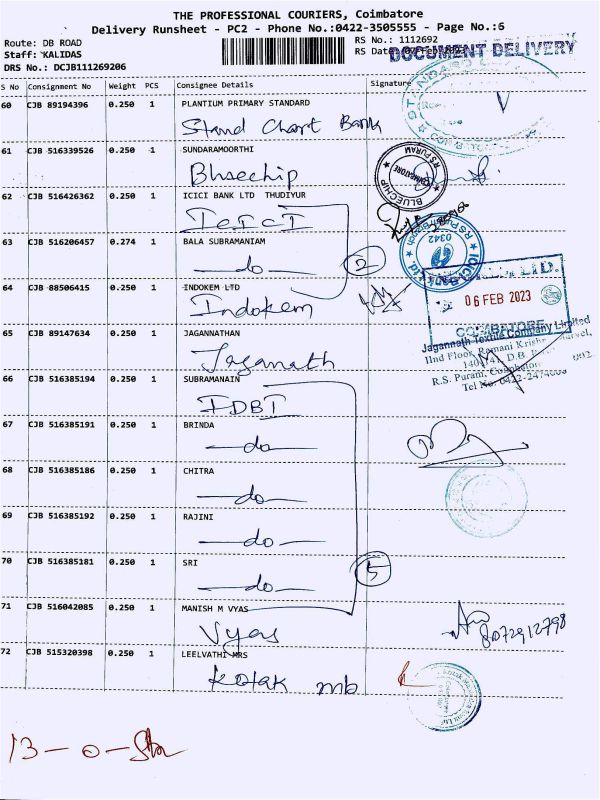 THE PROFESSIONAL COURIERS, Coimbatore
Delivery Runsheet - PC2 - Phone No.:0422-3505555 - Page No.:6
Route: DB ROAD
RS No.: 1112692
Staff: KALIDAS
RS Date
DOCUMENT DELIVERY
DRS No.: DCJB111269206
S No Consignment No Weight PCS Consignee Details Signature
60 CJB 89194396 0.250 1 PLANTIUM PRIMARY STANDARD
Stand Chart Bank
61 CJB 516339526 0.250 1 SUNDARAMOORTHI
Bluechip
BLUECHIP
COIMBATORE
RS PURAM
62 CJB 516426362 0.250 1 ICICI BANK LTD THUDIYUR
ICICI
63 CJB 516206457 0.274 1 BALA SUBRAMANIAM
do
2
ICICI Bank Ltd
0342
64 CJB 88506415 0.250 1 INDOKEM LTD
Indokem
06 FEB 2023
COIMBATORE
65 CJB 89147634 0.250 1 JAGANNATHAN
Jaganath
Jagannath Textile Company Limited
IInd Floor, Ramani Krishn
R.S. Puram, Coimbatore
Tel No: 0422-
66 CJB 516385194 0.250 1 SUBRAMANAIN
IDBI
67 CJB 516385191 0.250 1 BRINDA
do
68 CJB 516385186 0.250 1 CHITRA
do
69 CJB 516385192 0.250 1 RAJINI
do
70 CJB 516385181 0.250 1 SRI
do
5
71 CJB 516042085 0.250 1 MANISH M VYAS
Vyas
8072912798
72 CJB 515320398 0.250 1 LEELVATHI MRS
Kotak mb
13 - 0 -